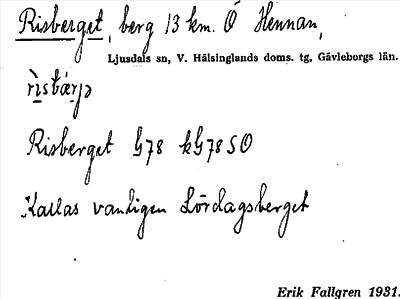 Risberget, berg 13 km. Ö Hennan,
Ljusdals sn, V. Hälsinglands doms. tg, Gävleborgs län.
rìsbærjə
Risberget G78 kG78SO
Kallas vanligen Lördagsberget
Erik Fallgren 1931.